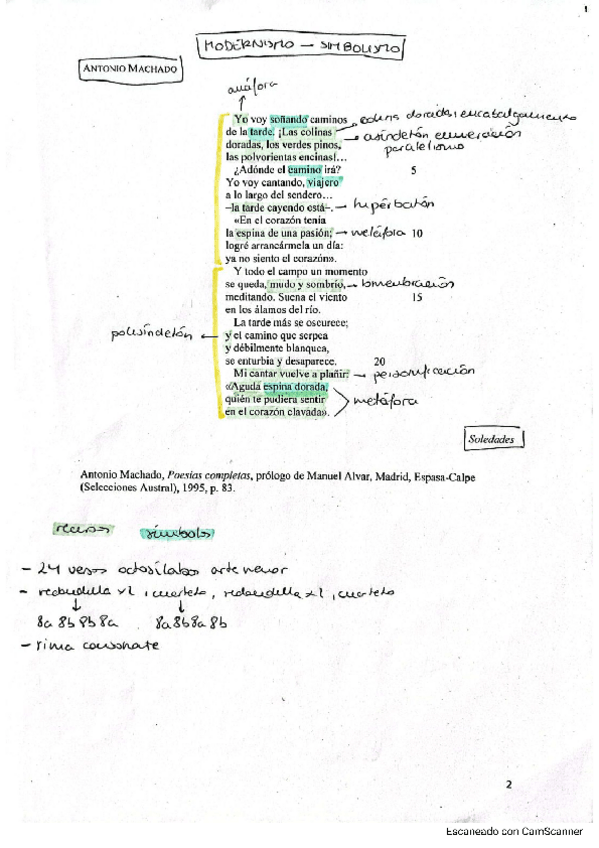 1
MODERNISMO — SIMBOLISMO
ANTONIO MACHADO
anáfora
Yo voy soñando caminos
de la tarde. ¡Las colinas
doradas, los verdes pinos,
las polvorientas encinas!...
¿Adónde el camino irá? 5
Yo voy cantando, viajero
a lo largo del sendero...
–la tarde cayendo está–.
«En el corazón tenía
la espina de una pasión; 10
logré arrancármela un día:
ya no siento el corazón».
Y todo el campo un momento
se queda, mudo y sombrío,
meditando. Suena el viento 15
en los álamos del río.
La tarde más se oscurece;
y el camino que serpea
y débilmente blanquea,
se enturbia y desaparece. 20
Mi cantar vuelve a plañir:
«Aguda espina dorada,
quién te pudiera sentir
en el corazón clavada».
colinas doradas: encabalgamiento
asíndeton enumeración
paralelismo
hipérbaton
metáfora
polisíndeton
personificación
metáfora
Soledades
Antonio Machado, Poesías completas, prólogo de Manuel Alvar, Madrid, Espasa-Calpe
(Selecciones Austral), 1995, p. 83.
recursos símbolos
- 24 versos octosílabos arte menor
- redondilla x2, cuarteta, redondilla x2, cuarteta
8a 8b 8b 8a 8a 8b 8a 8b
- rima consonante
2
Escaneado con CamScanner